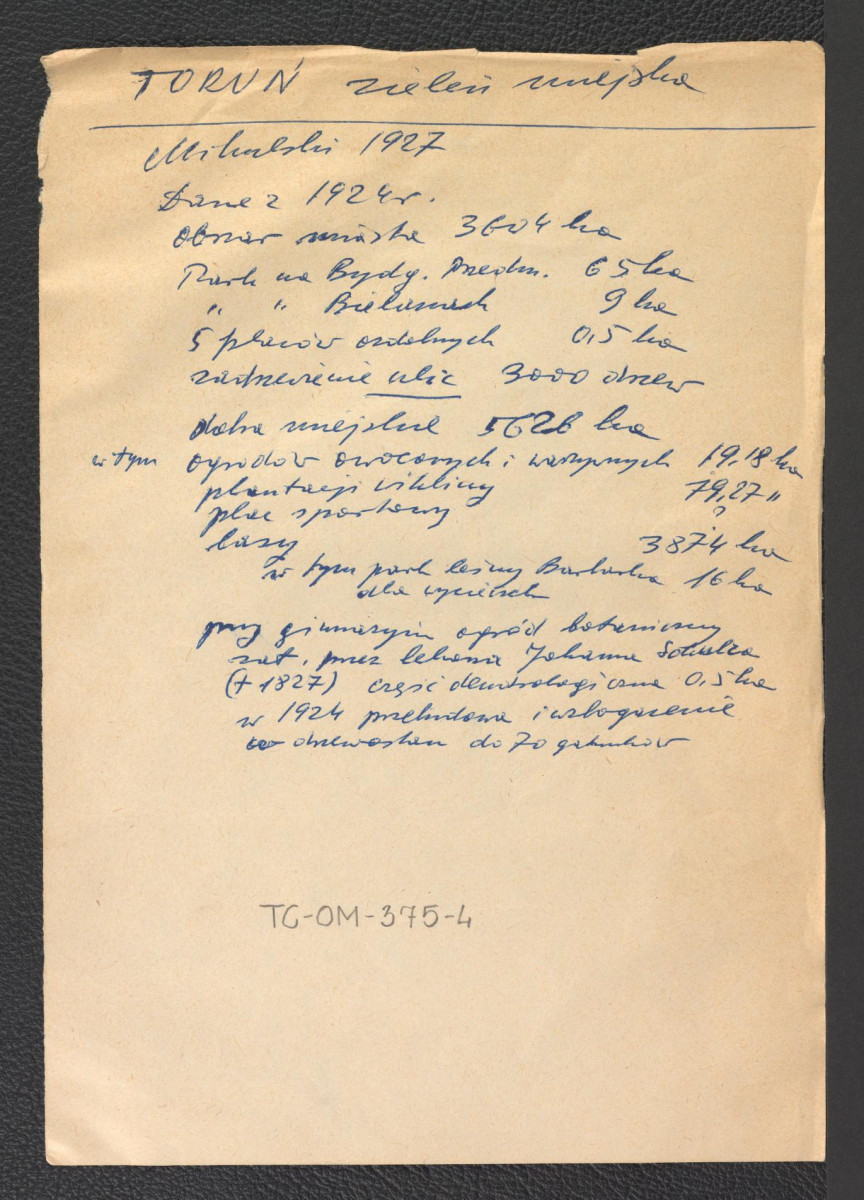 TORUŃ zieleń miejska
Mikulski 1927
Dane z 1924 r.
obszar miasta 3604 ha
Park na Bydg. Przedm. 65 ha
" " Bielanach 9 ha
5 placów ozdobnych 0,5 ha
zadrzewienie ulic 3000 drzew
dobra miejskie 5626 ha
w tym ogrodów owocowych i warzywnych 19,18 ha
plantacji wikliny 79,27 "
plac sportowy ?
lasy 3874 ha
w tym park leśny Barbarka 16 ha
dla wycieczek
przy gimnazjum ogród botaniczny
zał. przez lekarza Johanna
(+ 1827) część dendrologiczna 0,5 ha
w 1924 przebudowa i wzbogacenie
drzewostan do 70 gatunków
TC-OM-375-4